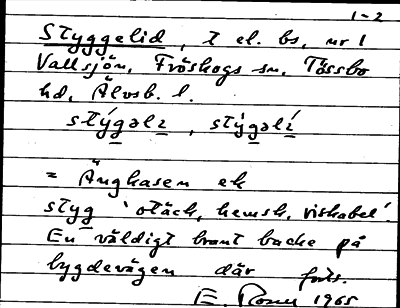 1-2
Styggelid, t el. bs, nr 1
Vallsjön, Fröskogs sn, Tössbo
hd, Älvsb. l.
stýgəlɪ, stýgəlí
= Änghasen ek
styg 'otäck, hemsk, riskabel'.
En väldigt brant backe på
bygdevägen där forts.
E. 1965